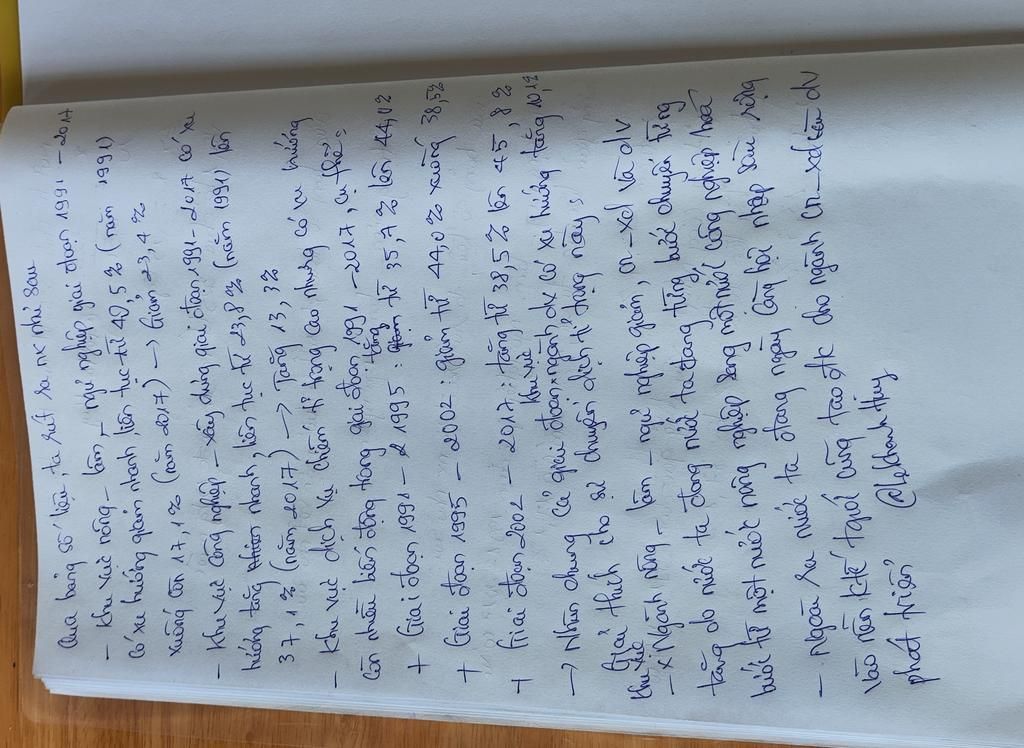 Qua bảng số liệu, ta rút ra nx như sau
- Khu vực nông - lâm - ngư nghiệp giai đoạn 1991 - 2017
có xu hướng giảm nhanh, liên tục từ 40,5% (năm 1991)
xuống còn 17,1% (năm 2017) -> Giảm 23,4%
- Khu vực công nghiệp - xây dựng giai đoạn 1991-2017 có xu
hướng tăng nhanh, liên tục từ 23,8% (năm 1991) lên
37,1% (năm 2017) -> Tăng 13,3%
- Khu vực dịch vụ chiếm tỉ trọng cao nhưng có xu hướng
còn nhiều biến động trong giai đoạn 1991-2017, cụ thể:
+ Giai đoạn 1991 - 1995: tăng từ 35,7% lên 44,0%
+ Giai đoạn 1995 - 2002: giảm từ 44,0% xuống 38,5%
+ Giai đoạn 2002 - 2017: tăng từ 38,5% lên 45,8%
-> Nhìn chung cả giai đoạn khu vực dv có xu hướng tăng 10,1%
Giải thích cho sự chuyển dịch tỉ trọng này:
- Khu vực nông - lâm - ngư nghiệp giảm, cn-xd và dv
tăng do nước ta đang nước ta đang từng bước chuyển từng
bước từ một nước nông nghiệp sang một nước công nghiệp hoá
- Ngoài ra nước ta đang ngày càng hội nhập sâu rộng
vào nền ktế tgiới cũng tạo đk cho ngành cn-xd lẫn dv
phát triển @lekhanhhuy